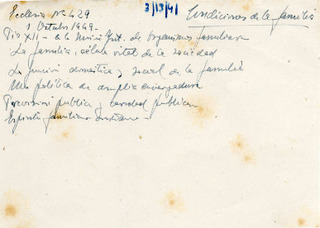 Ecclesia Nº 429
3/13/41
Condiciones de la familia
1 Octubre 1949-
Pio XII - a la Unión Int. de Organismos Familiares
La familia, célula vital de la sociedad
La función doméstica y social de la familia
Una política de amplia envergadura
Previsión pública y caridad pública
Espíritu familiar cristiano -